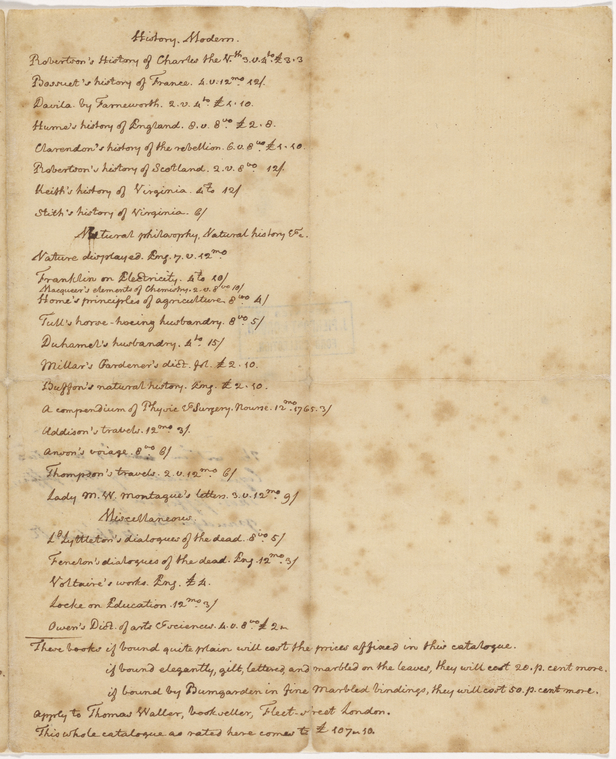 History. Modern.
Robertson's History of Charles the Vth 3.v.4to £3.3
Bossuet's history of France. 4.v.12mo 12/.
Davila. by Farneworth. 2.v. 4to £1.10.
Hume's history of England. 8.v. 8vo £2.8.
Clarendon's history of the rebellion. 6.v.8vo £1.10.
Robertson's history of Scotland. 2.v.8vo 12/.
Keith's history of Virginia. 4to 12/
Stith's history of Virginia. 6/
Natural philosophy. Natural history &c.
Nature displayed. Eng. 7.v.12mo
Franklin on Electricity. 4to 10/
Macqueer's elements of Chemistry. 2.v.8vo 10/
Home's principles of agriculture. 8vo 4/
Tull's horse-hoeing husbandry. 8vo 5/
Duhamel's husbandry. 4to 15/
Millar's Gardener's dict. fol. £2.10.
Buffon's natural history. Eng. £2.10.
A compendium of Physic & Surgery. Nourse. 12mo 1765. 3/
Addison's travels. 12mo 3/.
Anson's voiage. 8vo 6/
Thompson's travels. 2.v.12mo 6/
Lady M. W. Montague's letters. 3.v.12mo 9/
Miscellaneous
Ld Lyttleton's dialogues of the dead. 8vo 5/
Fenelon's dialogues of the dead. Eng. 12mo 3/
Voltaire's works. Eng. £4.
Locke on Education. 12mo 3/
Owen's Dict. of arts & sciences. 4.v. 8vo £2
These books if bound quite plain will cost the prices affixed in this catalogue.
if bound elegantly, gilt, lettered, and marbled on the leaves, they will cost 20. p. cent more.
if bound by Bumgarden in fine Marbled bindings, they will cost 50. p. cent more.
Apply to Thomas Waller, bookseller, Fleet-street London.
This whole catalogue as rated here comes to £107. 10.